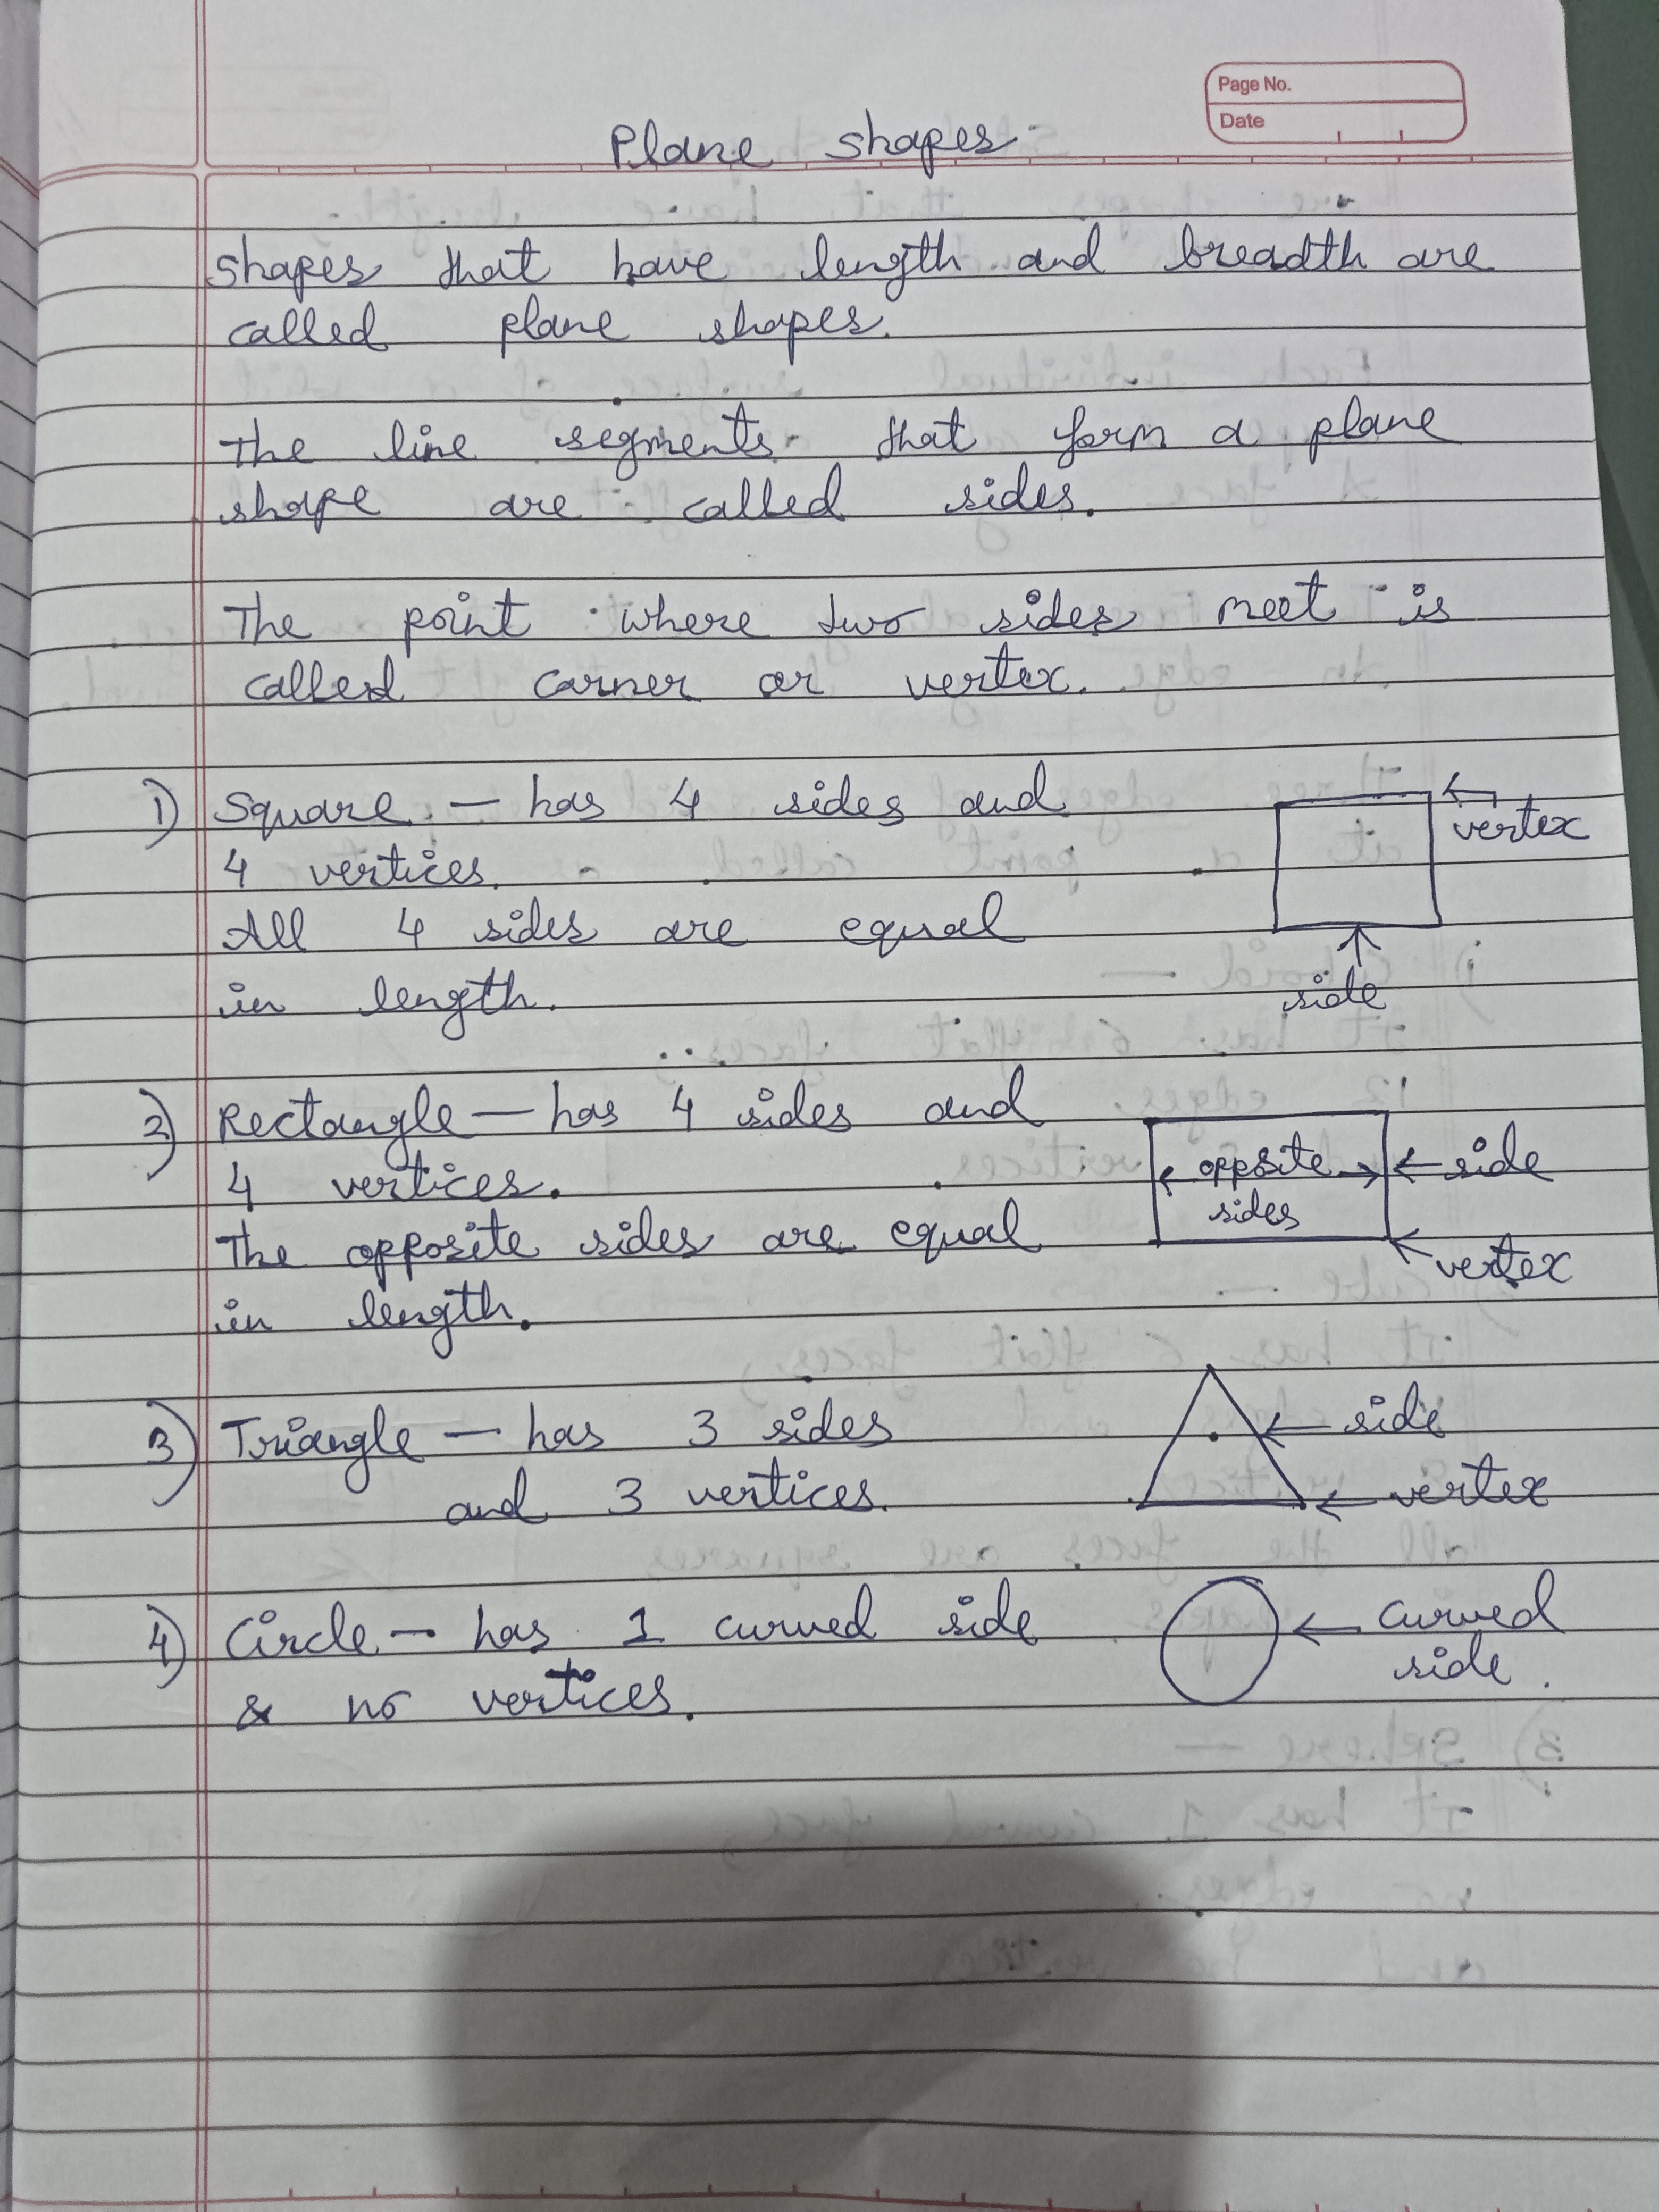 Page No.
Date
Plane shapes
shapes that have length and breadth are
called plane shapes.
The line segments that form a plane
shape are called sides.
The point where two sides meet is
called corner or vertex.
1) Square - has 4 sides and
4 vertices.
All 4 sides are equal
in length.
vertex
side
2) Rectangle - has 4 sides and
4 vertices.
The opposite sides are equal
in length.
opposite
sides
side
vertex
3) Triangle - has 3 sides
and 3 vertices.
side
vertex
4) Circle - has 1 curved side
& no vertices.
curved
side.